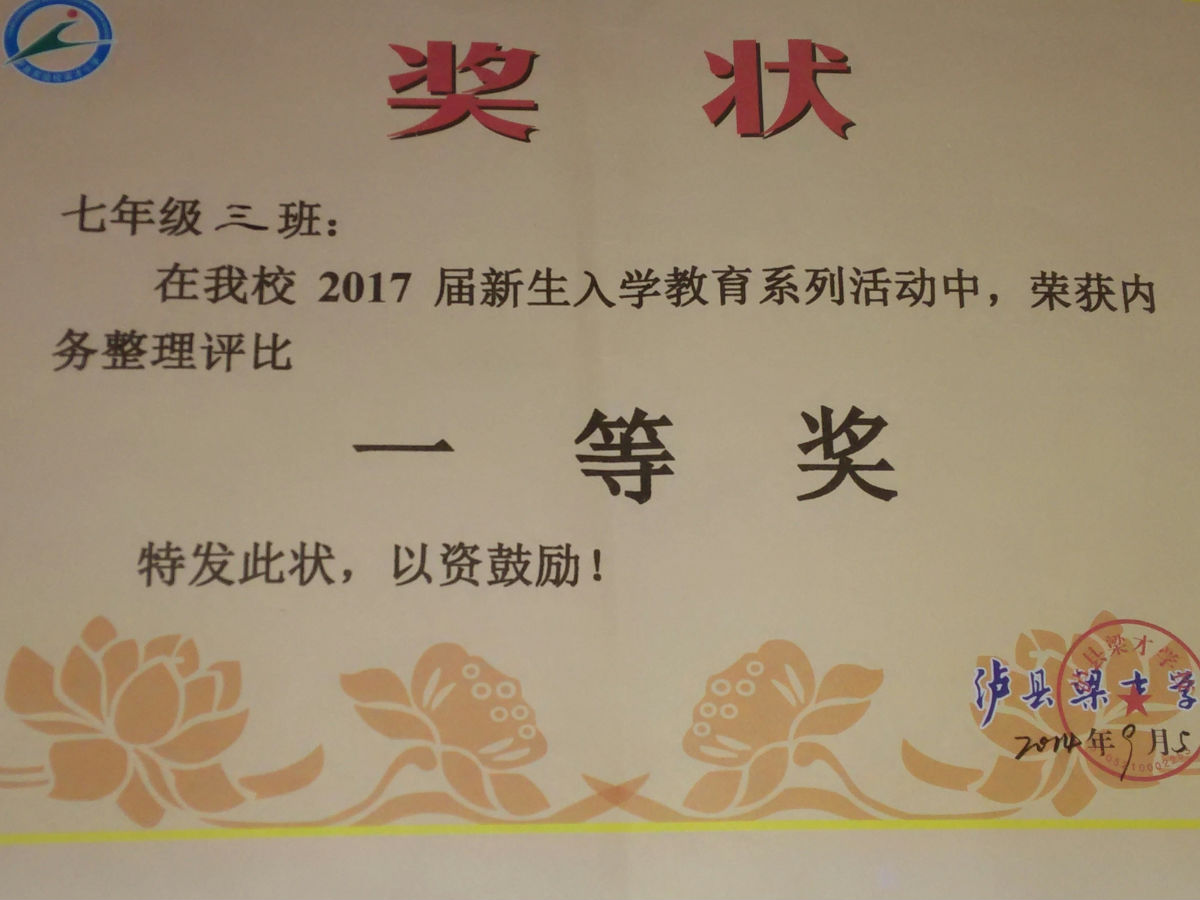 奖状
七年级三班：
在我校 2017 届新生入学教育系列活动中，荣获内
务整理评比
一等奖
特发此状，以资鼓励！
县梁才学
泸县梁才学
2014年9月5